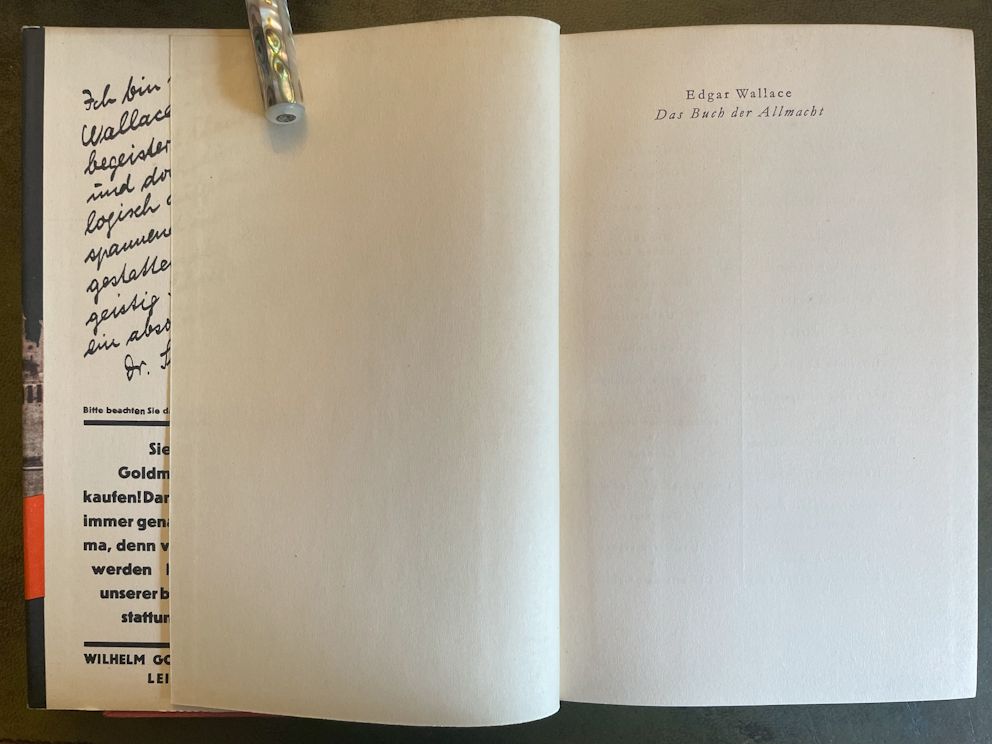 Ich bin
Wallace
begeister
und do
logisch
spannen
gestatte
geistig
ein abso
Dr.
Bitte beachten Sie d
Sie
Goldm
kaufen! Dar
immer gena
ma, denn v
werden
unserer b
stattun
WILHELM GO
LEI
Edgar Wallace
Das Buch der Allmacht